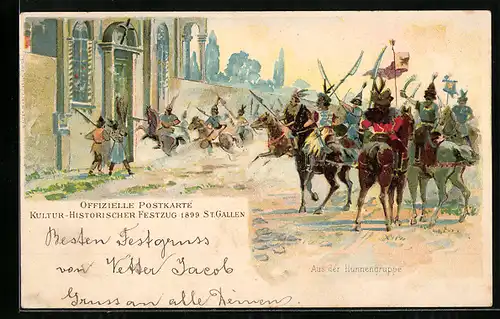 OFFIZIELLE POSTKARTE
KULTUR-HISTORISCHER FESTZUG 1899 ST. GALLEN
Aus der Hunnengruppe
Besten Festgruss
von Vetter Jacob
Gruss an alle Deinen.